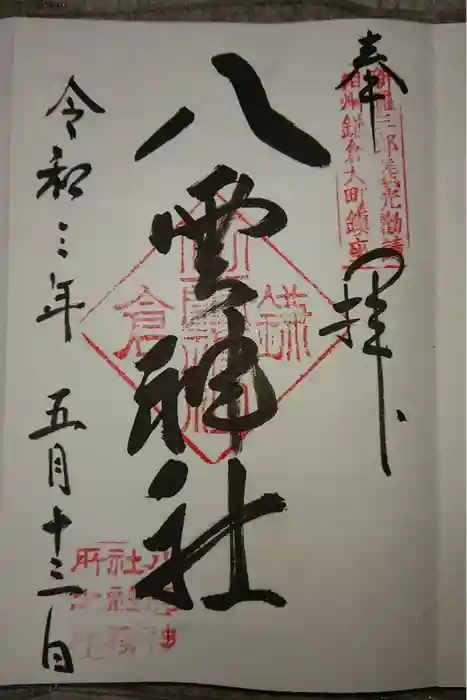 奉拝
新羅三郎義光勧請
相州鎌倉大町鎮座
八雲神社
鎌倉
令和三年 五月十三日